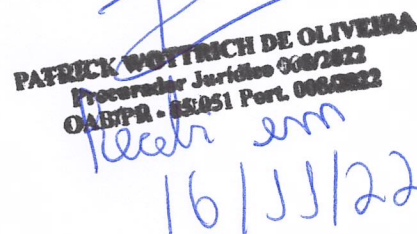 PATRICK WOTTRICH DE OLIVEIRA
Procurador Jurídico 008/2022
OAB/PR - 85.051 Port. 008/2022
Recebi em
16/11/22